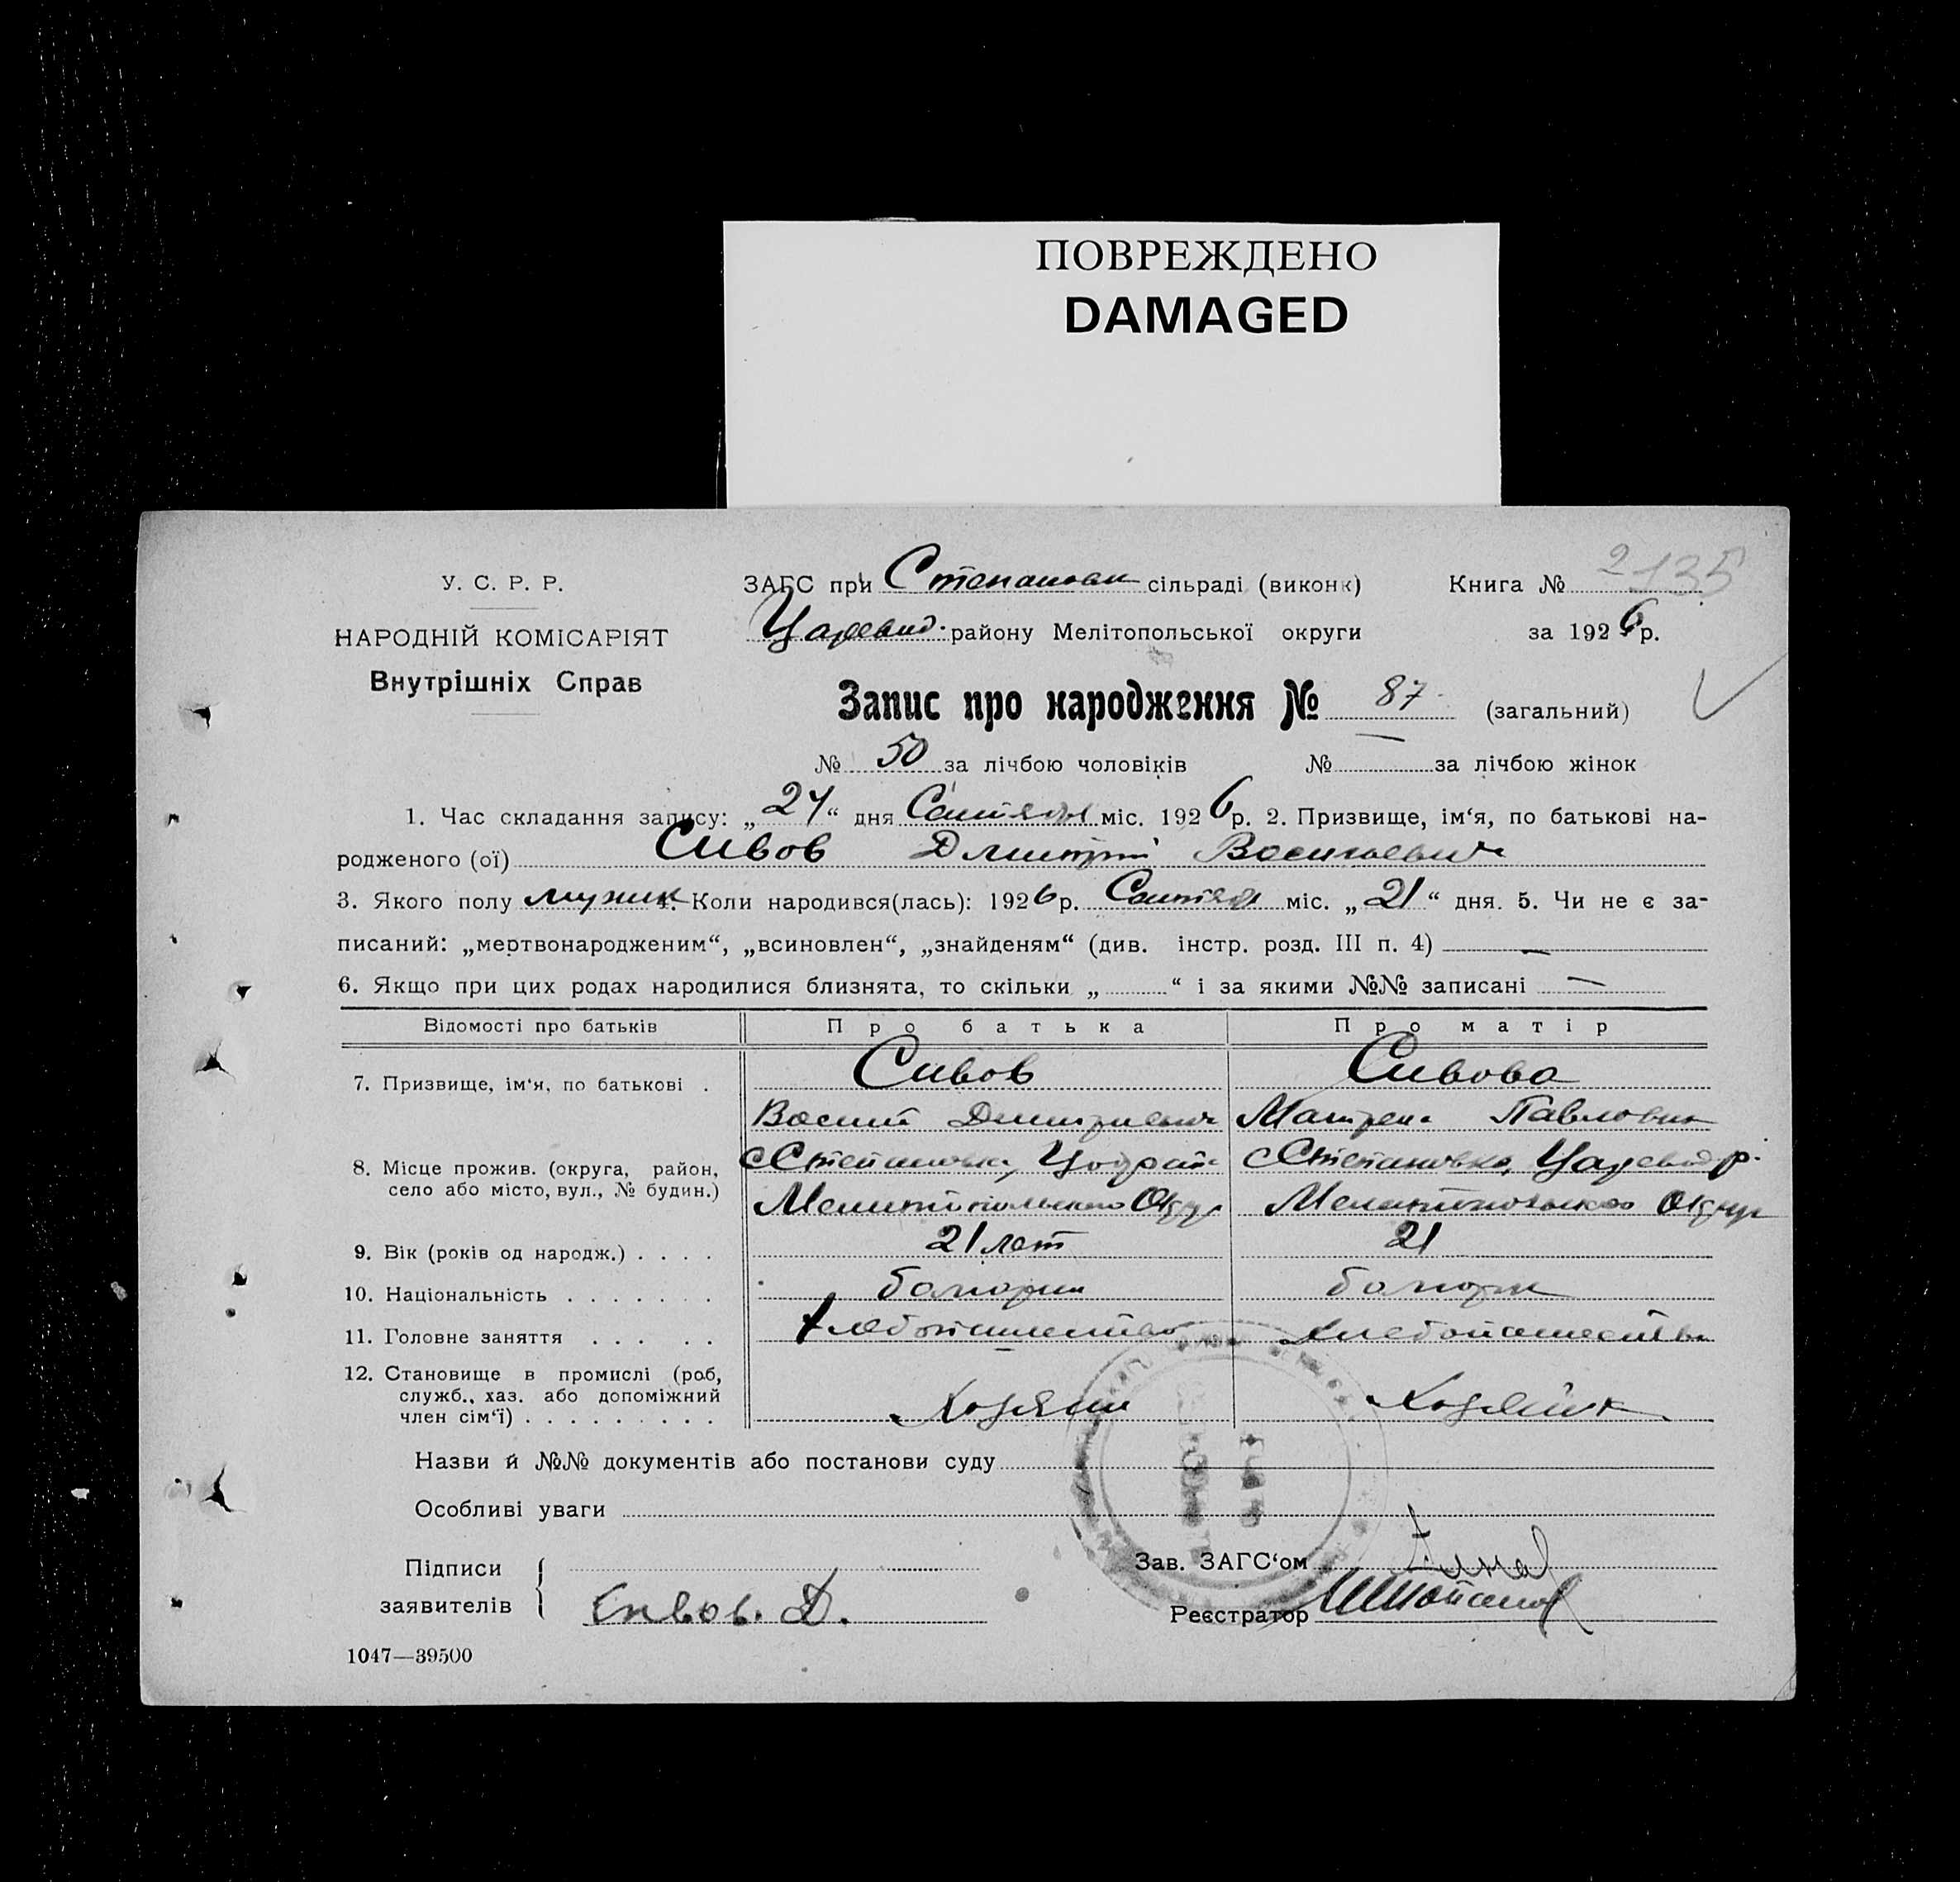 ПОВРЕЖДЕНО
DAMAGED
У. С. Р. Р.
НАРОДНІЙ КОМІСАРІЯТ
Внутрішніх Справ
ЗАГС при Степановк сільраді (виконк) Книга № 2135
Царевид. району Мелітопольської округи за 1926 р.
Запис про народження № 87 (загальний)
№ 50 за лічбою чоловіків № за лічбою жінок
1. Час складання запису: „24“ дня Сентября міс. 1926 р. 2. Призвище, ім‘я, по батькові на-
родженого (ої) Сивов Дмитрий Васильевич
3. Якого полу мужик 4. Коли народився(лась): 1926 р. Сентября міс. „21“ дня. 5. Чи не є за-
писаний: „мертвонародженим“, „всиновлен“, „знайденям“ (див. інстр. розд. III п. 4) —
6. Якщо при цих родах народилися близнята, то скільки „ “ і за якими №№ записані —
Відомості про батьків Про батька Про матір
7. Призвище, ім‘я, по батькові . Сивов Сивова
Василий Дмитриевич Матрена Павловна
8. Місце прожив. (округа, район, с Степановка, с Степановка, Царевод р.
село або місто, вул., № будин.) Мелитопольского Округ Мелитопольского Округ
9. Вік (років од народж.) . . . . 21 лет 21
10. Національність . . . . . . . болгарин болгарк
11. Головне заняття . . . . . Хлебопашество Хлебопашество
12. Становище в промислі (роб,
служб., хаз. або допоміжний
член сім‘ї) . . . . . . . . . Хозяин Хозяйка
Назви й №№ документів або постанови суду
Особливі уваги
Підписи Зав. ЗАГС‘ом
заявителів Сивов. Д. Реєстратор
1047—39500